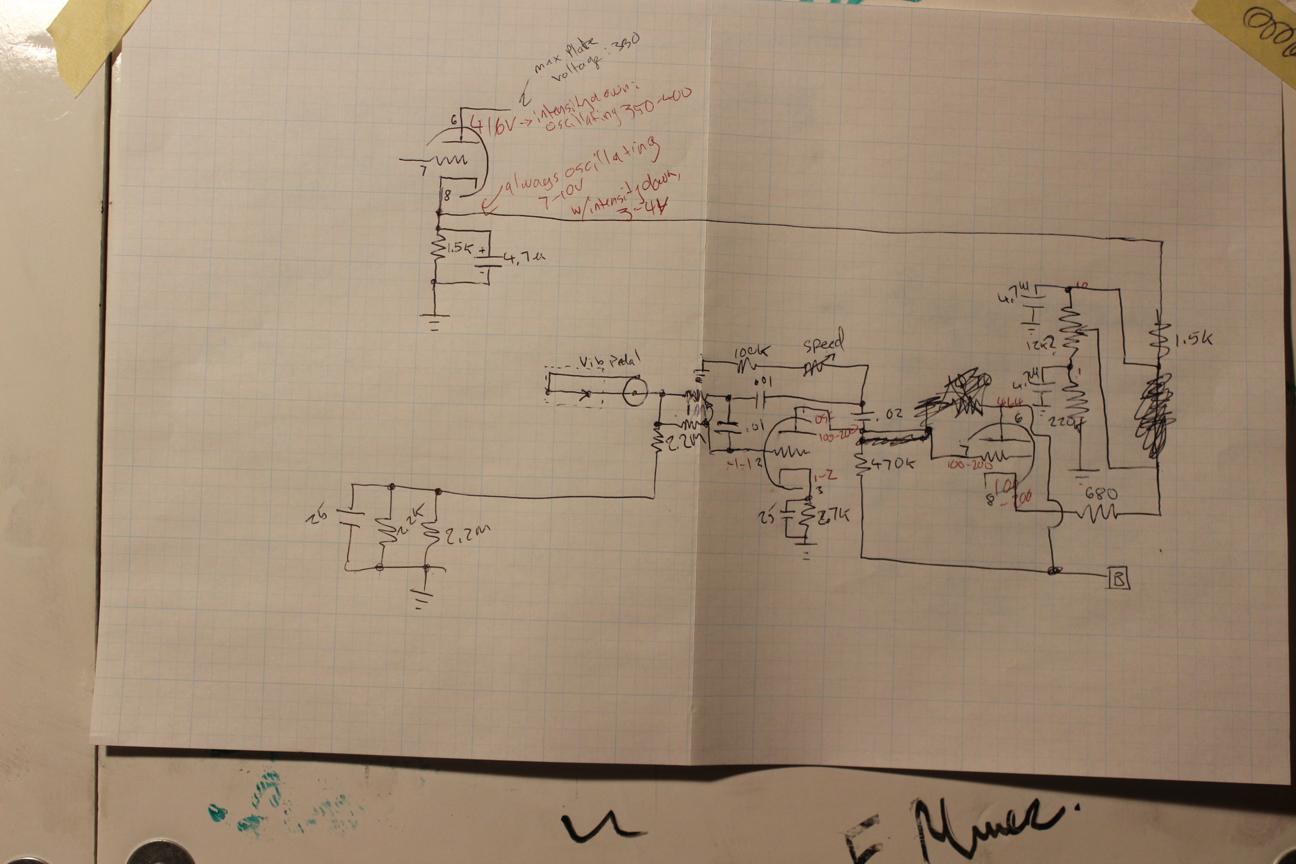 max plate
voltage: 350
6
416V → intensity down:
oscillating 350-400
7
always oscillating
7-10V
w/ intensity down,
3-4V
8
1.5K
+
4.7u
Vib Pedal
100K
speed
.01
.01
.02
2.2M
100-200
470K
1-2
3
25
2.7K
4.7u
10
1.5K
220
414
6
7
100-200
8
680
B
25
2.2K
2.2M